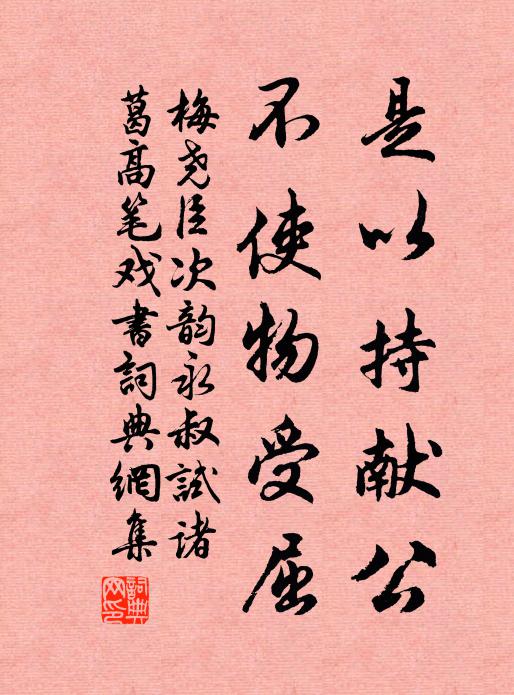 是以持献公
不使物受屈
梅尧臣次韵永叔试诸
葛高笔戏书詞典網集
詞典網印